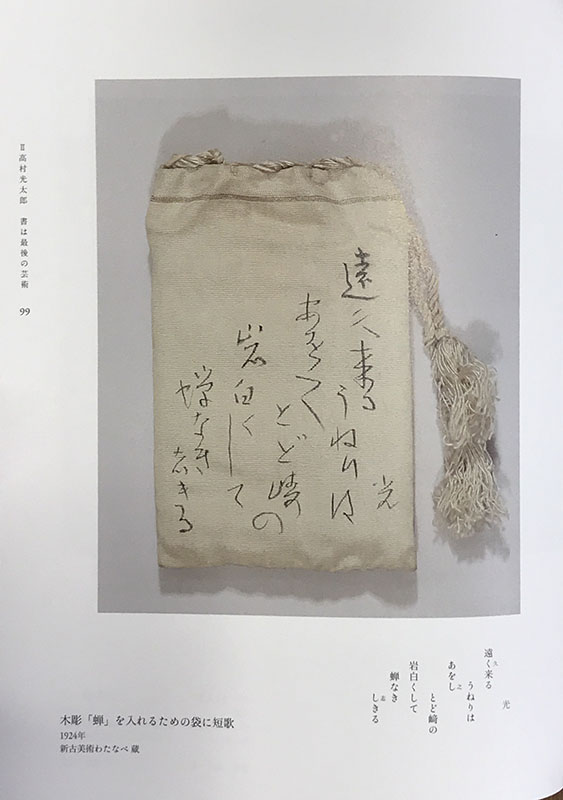 光
遠久来る うねりは
あを之
とど崎の
岩白くして
蝉なき
志きる
光
遠く来る
久
うねりは
あをし
之
とど崎の
岩白くして
蝉なき
しきる
志
木彫「蝉」を入れるための袋に短歌
1924年
新古美術わたなべ 蔵
Ⅱ 高村光太郎 書は最後の芸術
99